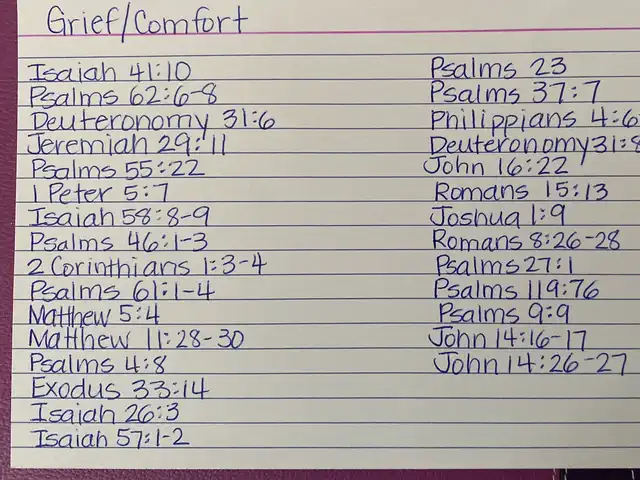 Grief/Comfort
Isaiah 41:10
Psalms 62:6-8
Deuteronomy 31:6
Jeremiah 29:11
Psalms 55:22
1 Peter 5:7
Isaiah 58:8-9
Psalms 46:1-3
2 Corinthians 1:3-4
Psalms 61:1-4
Matthew 5:4
Matthew 11:28-30
Psalms 4:8
Exodus 33:14
Isaiah 26:3
Isaiah 57:1-2
Psalms 23
Psalms 37:7
Philippians 4:6
Deuteronomy 31:8
John 16:22
Romans 15:13
Joshua 1:9
Romans 8:26-28
Psalms 27:1
Psalms 119:76
Psalms 9:9
John 14:16-17
John 14:26-27